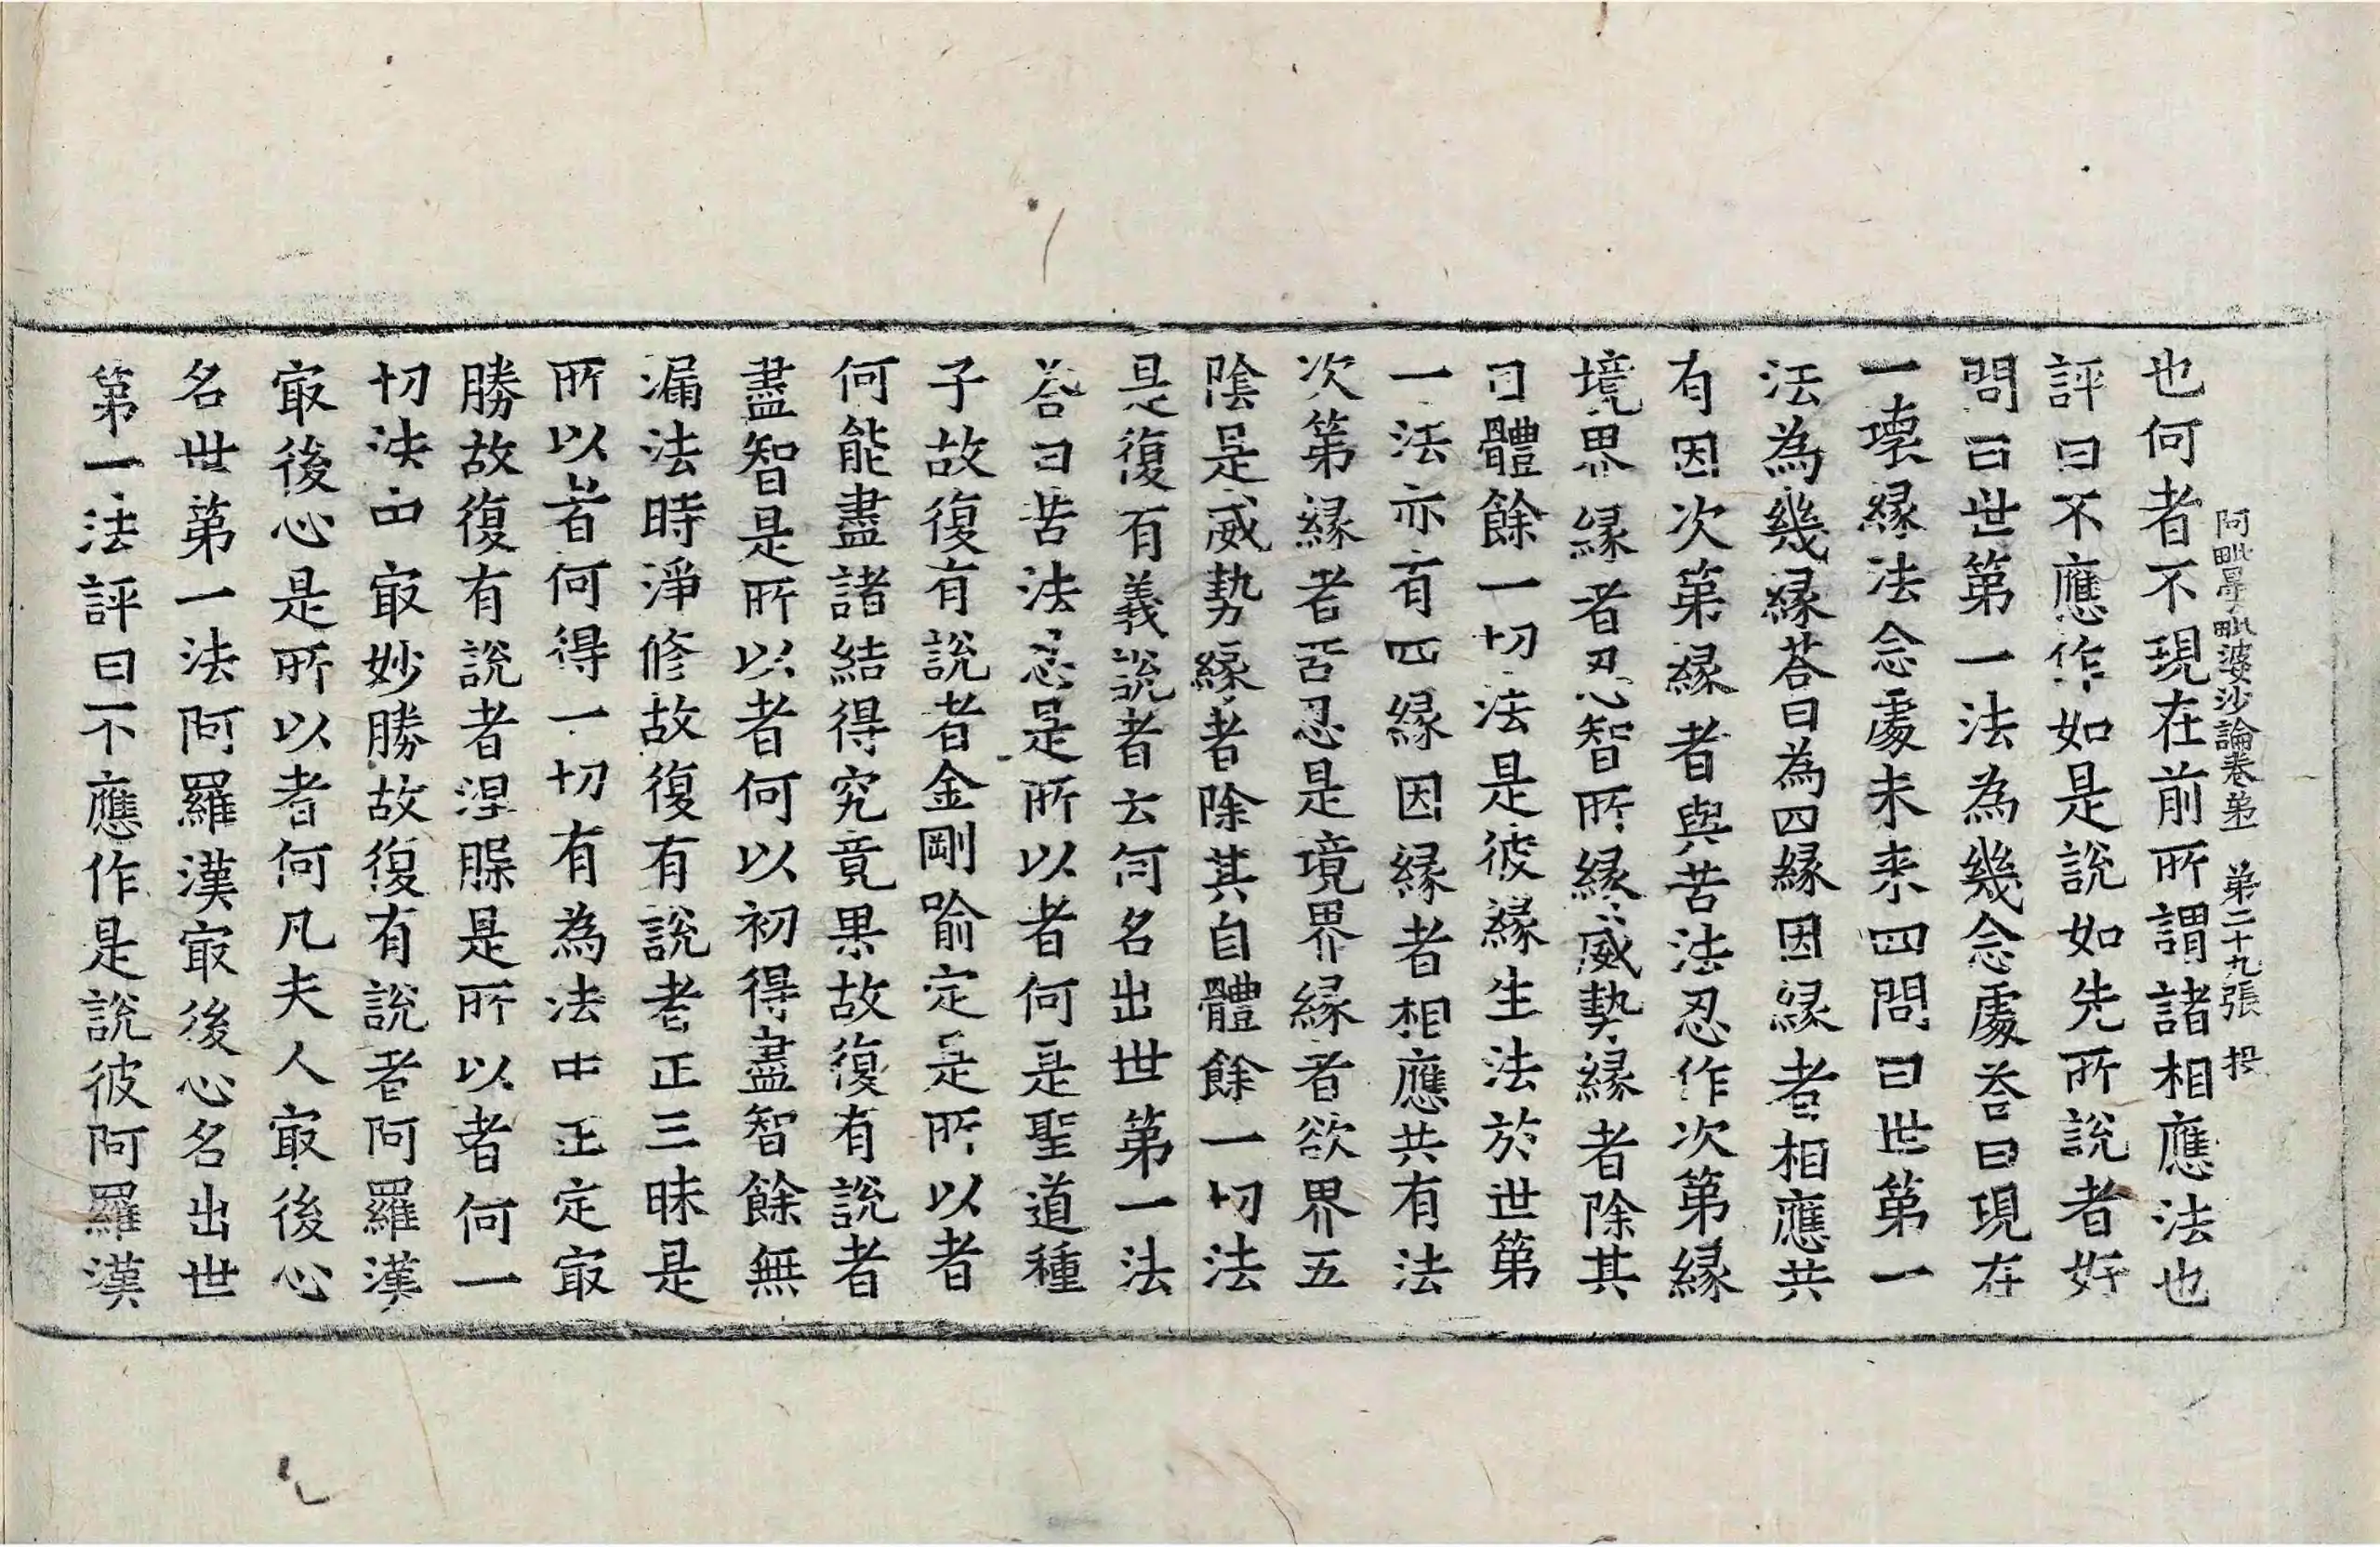 阿毗曇毗婆沙論卷第二 第二十九張 投
也何者不現在前所謂諸相應法也
評曰不應作如是說如先所說者好
問曰世第一法為幾念處荅曰現在
一壞緣法念處未来四問曰世第一
法為幾緣荅曰為四緣因緣者相應共
有因次第緣者與苦法忍作次第緣
境界緣者忍智所緣威勢緣者除其
自體餘一切法是彼緣生法於世第
一法亦有四緣因緣者相應共有法
次第緣者苦忍是境界緣者欲界五
陰是威勢緣者除其自體餘一切法
是復有義說者云何名出世第一法
荅曰苦法忍是所以者何是聖道種
子故復有說者金剛喻定是所以者
何能盡諸結得究竟果故復有說者
盡智是所以者何以初得盡智餘無
漏法時淨修故復有說者正三昧是
所以者何得一切有為法中正定㝡
勝故復有說者涅槃是所以者何一
切法中㝡妙勝故復有說者阿羅漢
㝡後心是所以者何凡夫人㝡後心
名世第一法阿羅漢㝡後心名出世
第一法評曰不應作是說彼阿羅漢